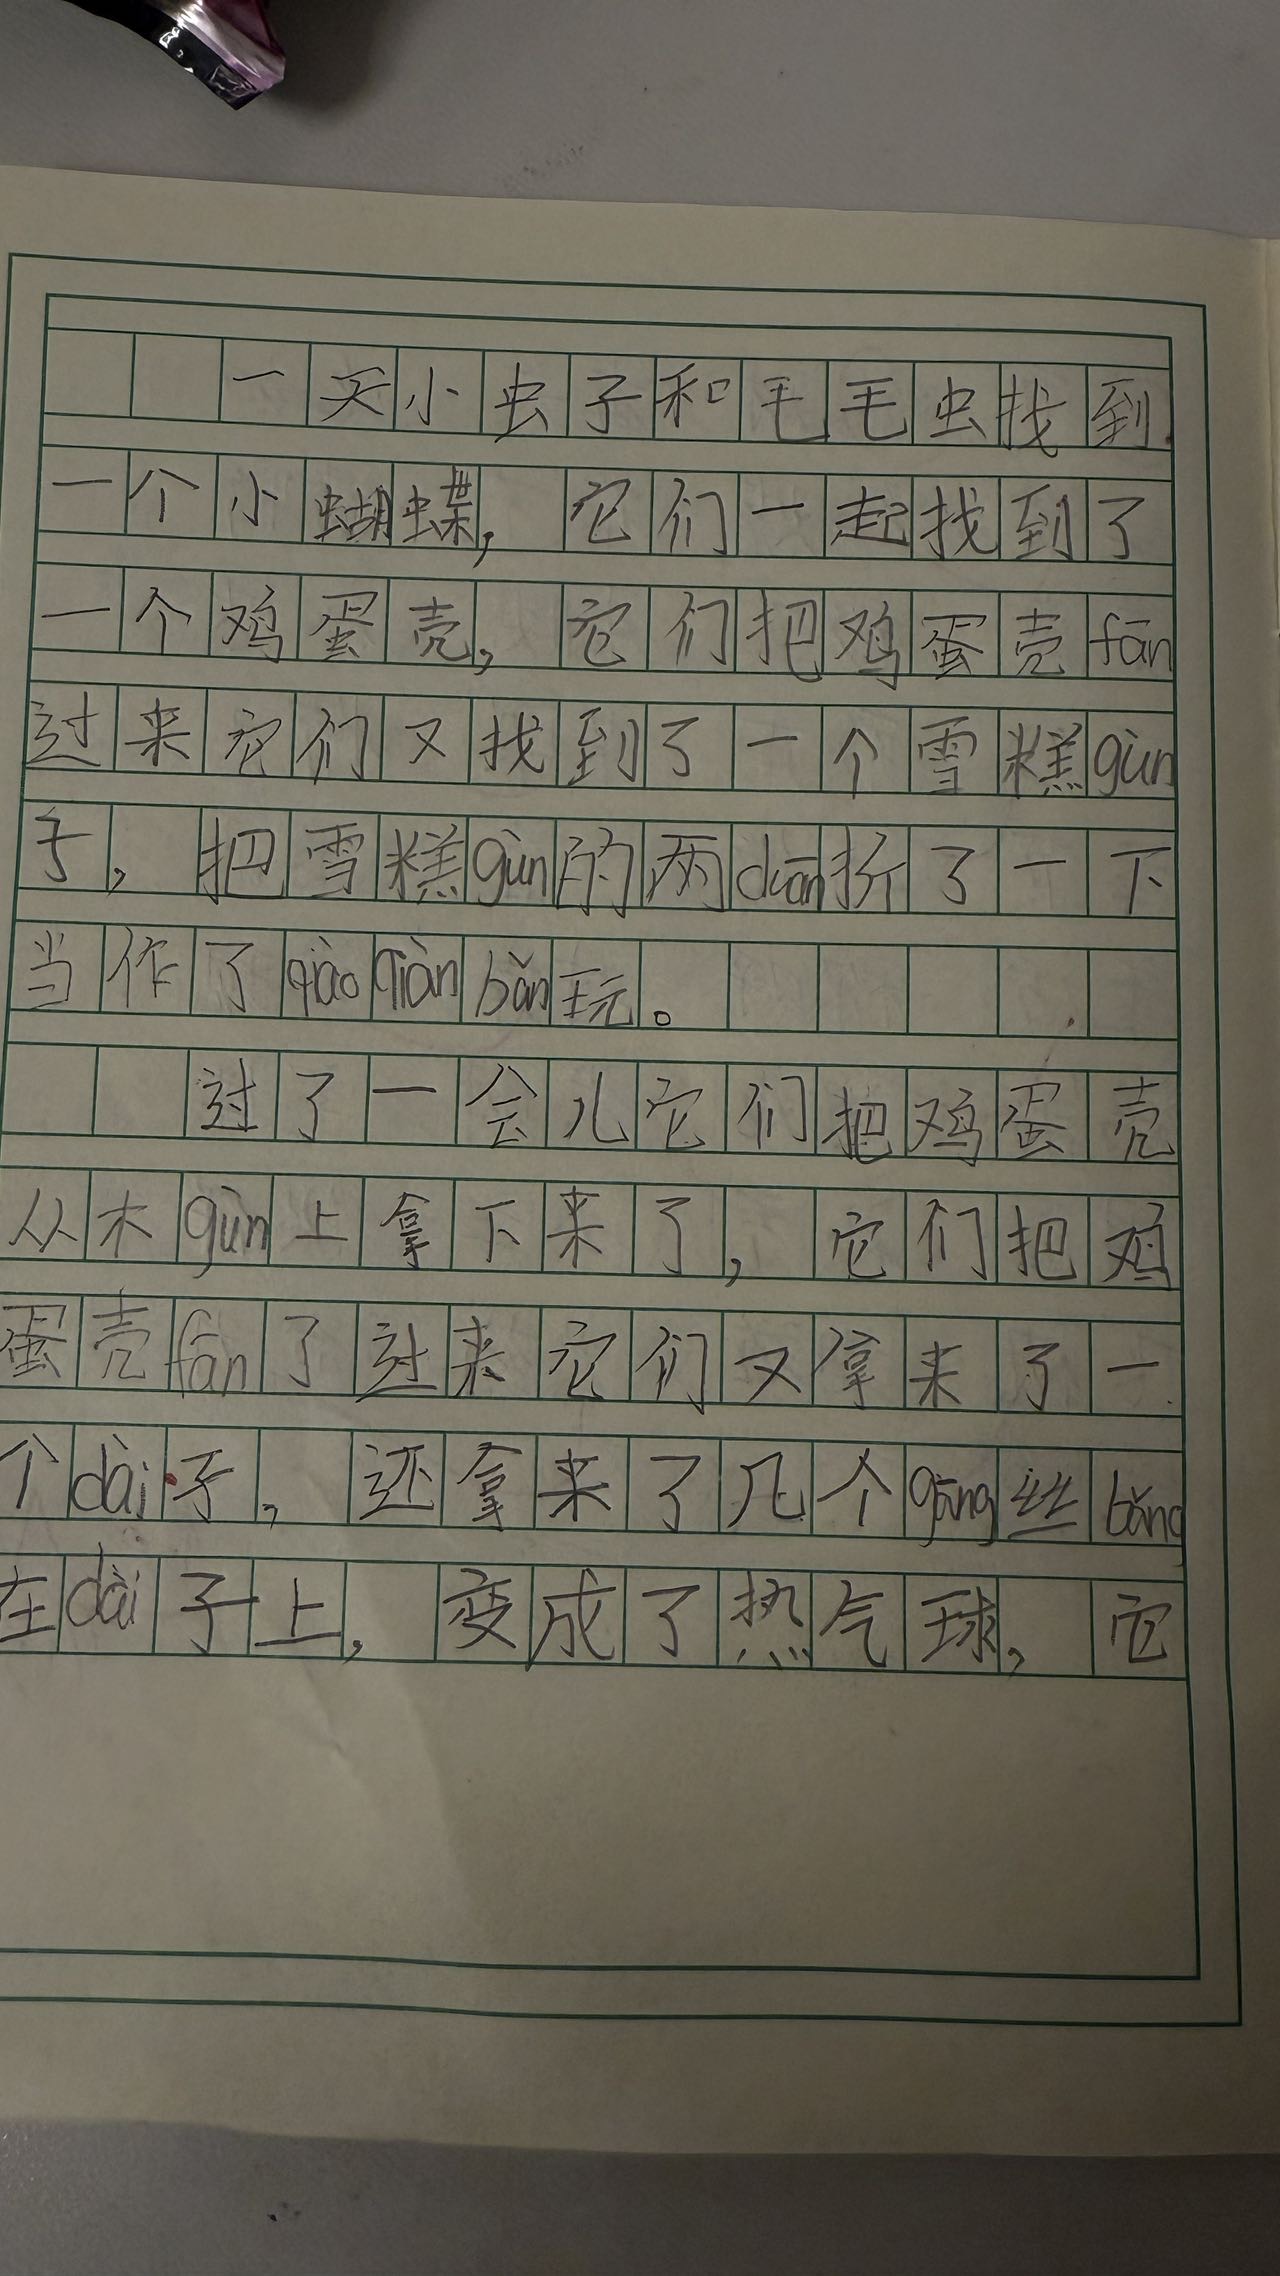 一天小虫子和毛毛虫找到
一个小蝴蝶，它们一起找到了
一个鸡蛋壳，它们把鸡蛋壳fān
过来它们又找到了一个雪糕gùn
子，把雪糕gùn的两duān折了一下
当作了qiào qiàn bǎn玩。
过了一会儿它们把鸡蛋壳
从木gùn上拿下来了，它们把鸡
蛋壳fān了过来它们又拿来了一
个dài子，还拿来了几个gāng丝bǎng
在dài子上，变成了热气球，它